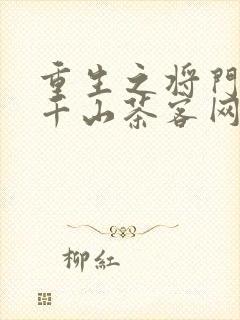 重生之将門
千山茶客网
柳紅